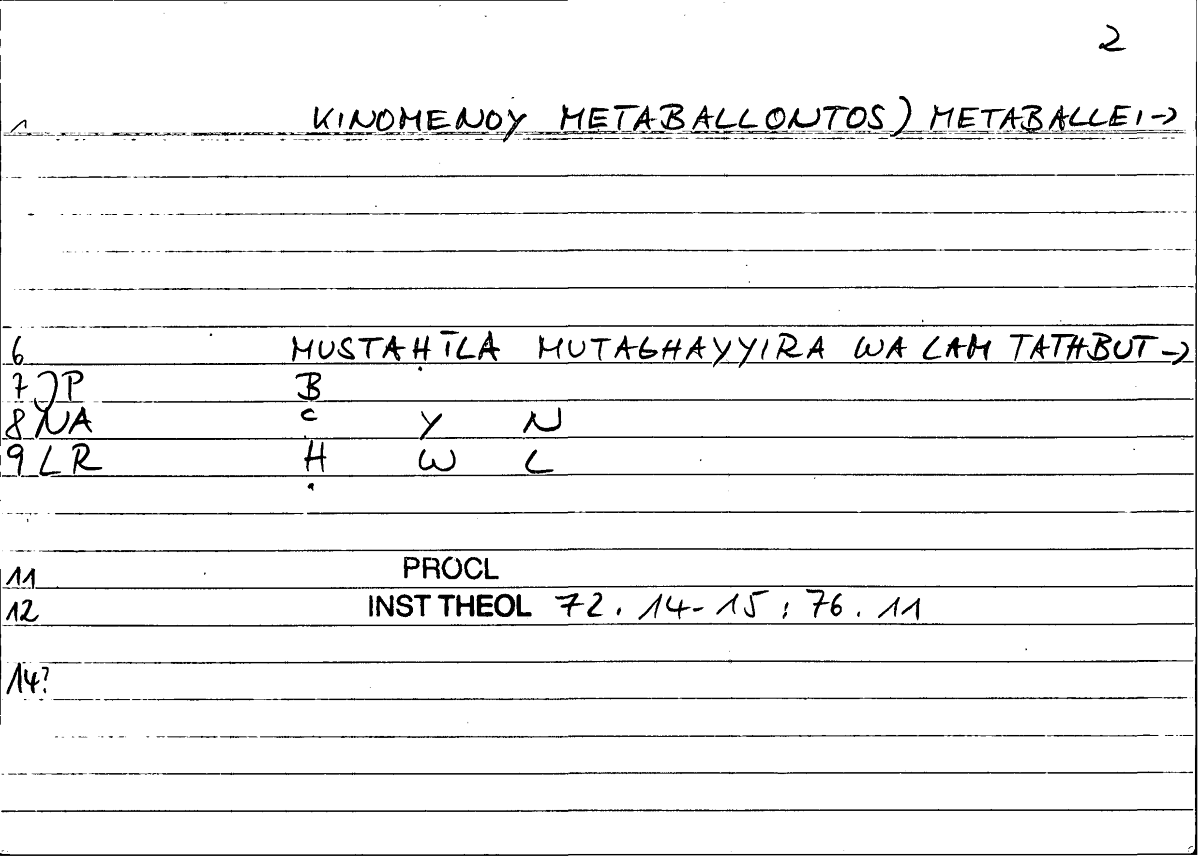 2
1 KINOMENOY METABALLONTOS) METABALLEI->
6 MUSTAḤĪLA MUTAGHAYYIRA WA LAM TATHBUT->
7 JP B
8 NA c Y N
9 LR Ḥ W L
11 PROCL
12 INST THEOL 72.14-15; 76.11
14?